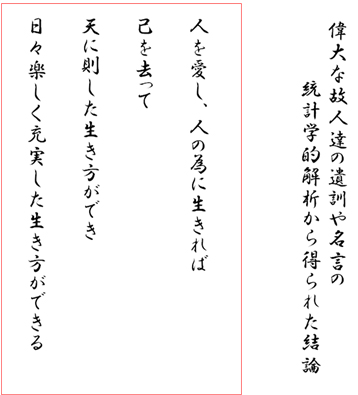 偉大な故人達の遺訓や名言の
統計学的解析から得られた結論
人を愛し、人の為に生きれば
己を去って
天に則した生き方ができ
日々楽しく充実した生き方ができる